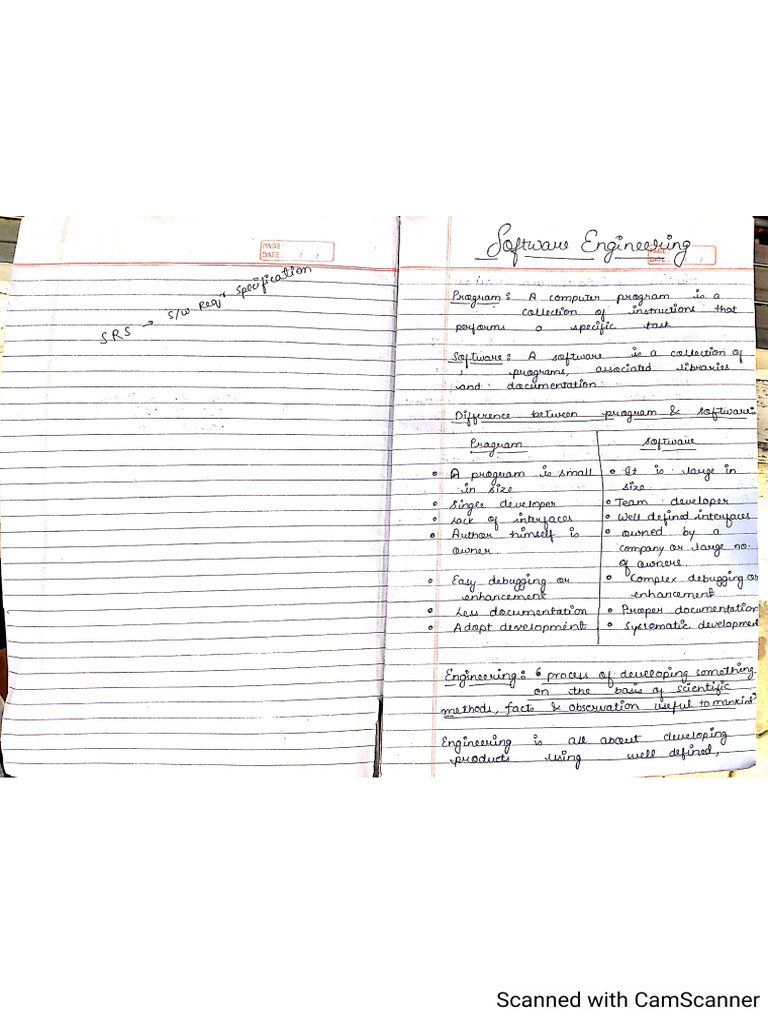 PAGE:
DATE: / /
SRS → S/W Reqr Specification
Software Engineering
PAGE
DATE: /
Program: A computer program is a
collection of instructions that
performs a specific task
Software: A software is a collection of
programs, associated libraries
and documentation
Difference between program & software:
Program
Software
• A program is small
in size
• Single developer
• Lack of interfaces
• Author himself is
owner.
• Easy debugging or
enhancement
• Less documentation
• Adopt development
• It is large in
size
• Team developer
• Well defined interfaces
• owned by a
company or large no.
of owners.
• Complex debugging or
enhancement
• Proper documentation
• Systematic development
Engineering: 6 process of developing something
on the basis of scientific
methods, facts & observation useful to mankind
Engineering is all about developing
products using well defined,
Scanned with CamScanner